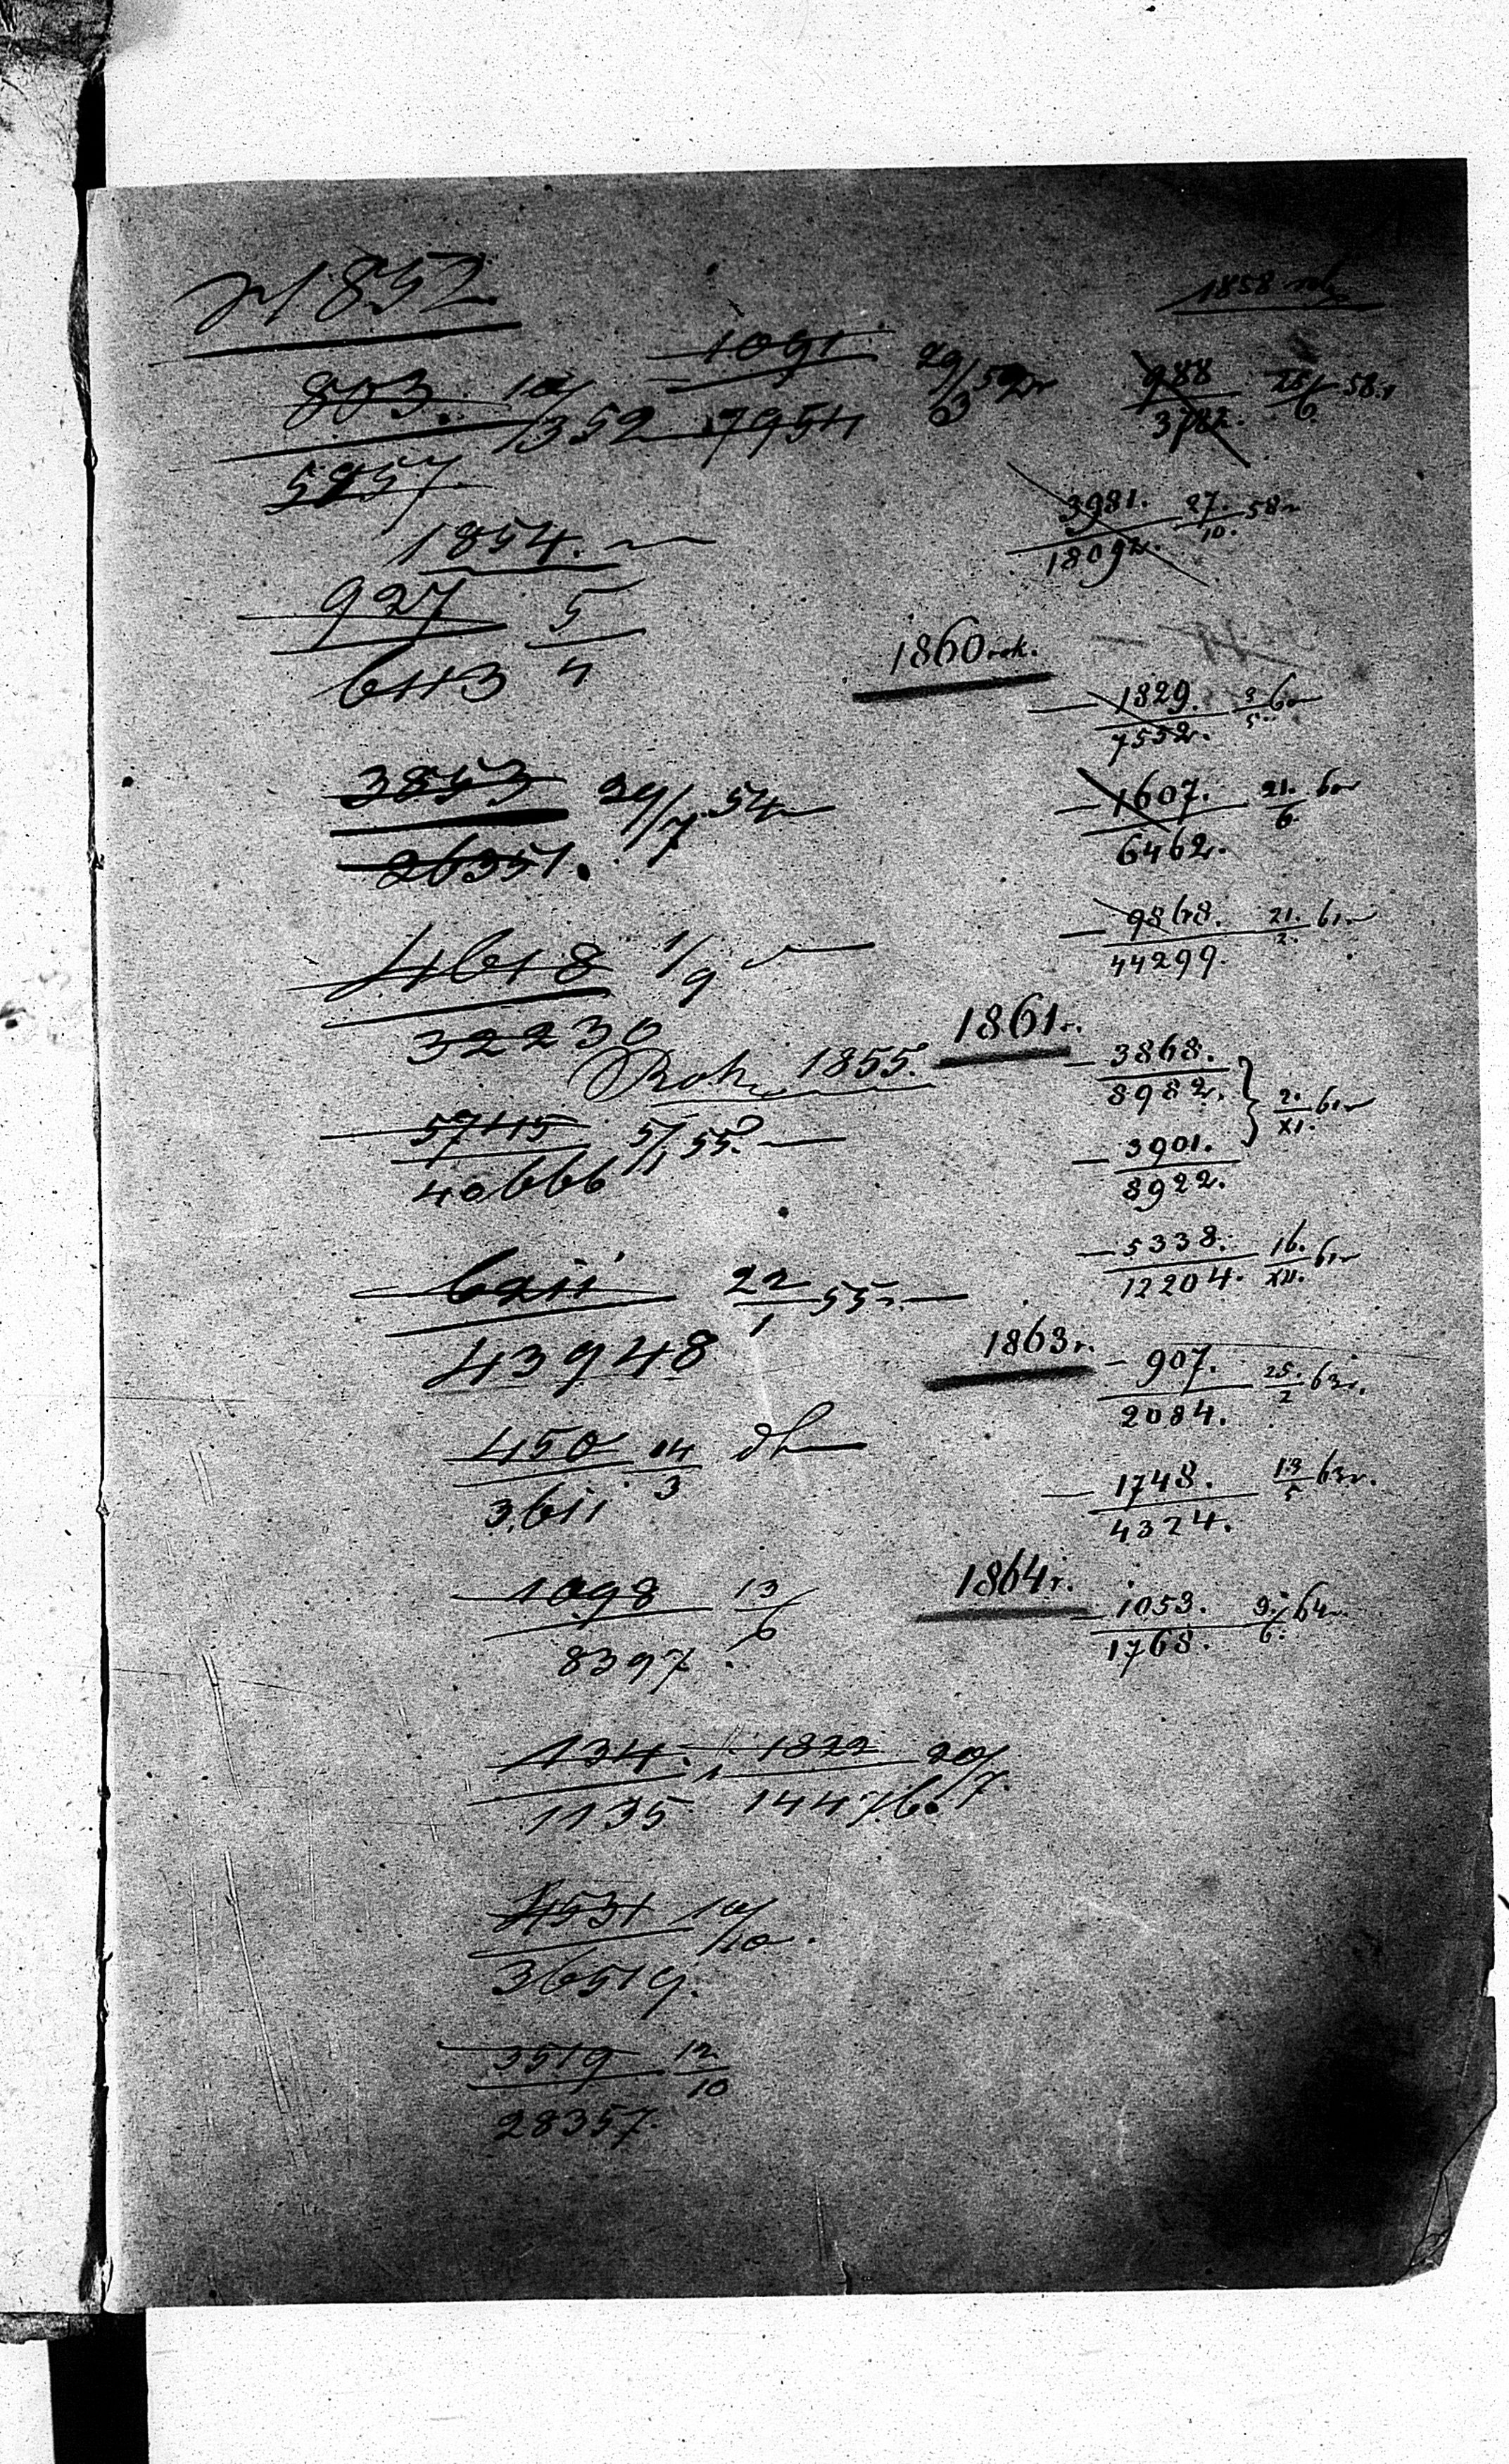 1852
803. 10/3 52
5257
1091 29/3 52r
7954
1854.
927 5/4
6113
3853 29/7 54
26351.
4618 1/9
32230
Rok 1855.
5745 5/1 55.
40666
6211 22/1 55r.
43948
450 14/3
3611
1098 13/6
8397.
134. 1822 20/7.
1135 14476.
4531 10/10.
36519.
3519 12/10
28357.
1858
988 25/6. 58.r
3782.
3981. 27./10. 58r
18092.
1860 rok.
1829. 3/5. 60r
7552.
1607. 21./6. 60r
6462.
9868. 21./2. 61r
44299.
1861r.
3868.
8982. 2./XI. 61r
3901.
8922.
5338. 16./XII. 61r
12204.
1863r.
907. 25./2 63r.
2084.
1748. 13/5 63r.
4324.
1864r.
1053. 9./6. 64r.
1768.